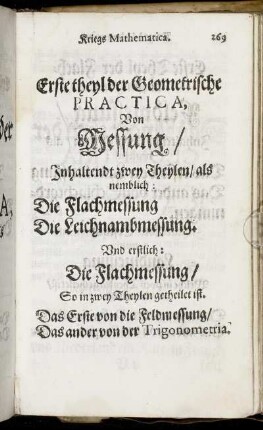 Kriegs Mathematica. 269
Erste theyl der Geometrische
PRACTICA,
Von
Messung/
Inhaltendt zwey Theylen/ als
nemblich:
Die Flachmessung
Die Leichnambmessung.
Und erstlich:
Die Flachmessung/
So in zwey Theylen getheilet ist.
Das Erste von die Feldmessung/
Das ander von der Trigonometria.